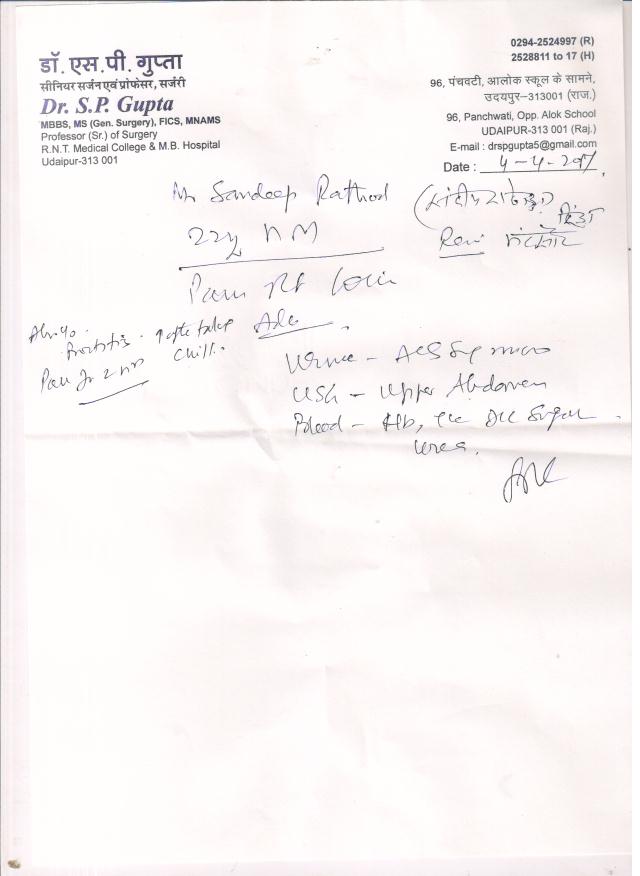 डॉ. एस.पी. गुप्ता
सीनियर सर्जन एवं प्रोफेसर, सर्जरी
Dr. S.P. Gupta
MBBS, MS (Gen. Surgery), FICS, MNAMS
Professor (Sr.) of Surgery
R.N.T. Medical College & M.B. Hospital
Udaipur-313 001
0294-2524997 (R)
2528811 to 17 (H)
96, पंचवटी, आलोक स्कूल के सामने,
उदयपुर–313001 (राज.)
96, Panchwati, Opp. Alok School
UDAIPUR-313 001 (Raj.)
E-mail : drspgupta5@gmail.com
Date : 4-4-
Mr Sandeep Rathod
22y
Pain Rt Loin
Adv
chill
Urine – micro
USG – Upper Abdomen
Blood – Hb, TLC DLC Sugar
Urea.